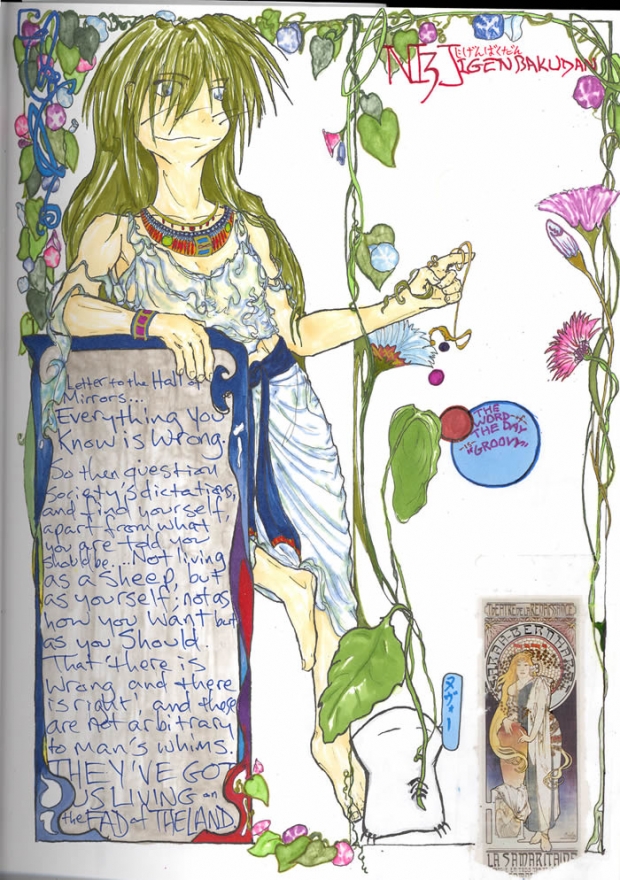 じげんばくだん
JIGENBAKUDAN
Letter to the Hall of
Mirrors...
Everything You
Know is Wrong.
So then question
Society's dictations,
and find yourself,
apart from what
you are told you
should be... Not living
as a sheep, but
as yourself; not as
how you want but
as you should.
That 'there is
wrong and there
is right', and those
are not arbitrary
to man's whims.
THEY'VE GOT
US LIVING on
the FAD of THE LAND
THE
WORD
THE DAY
-is-
"GROOVY"
ヌヴォー
THEATRE DE LA RENAISSANCE
SARAH BERNHARDT
LA SAMARITAINE